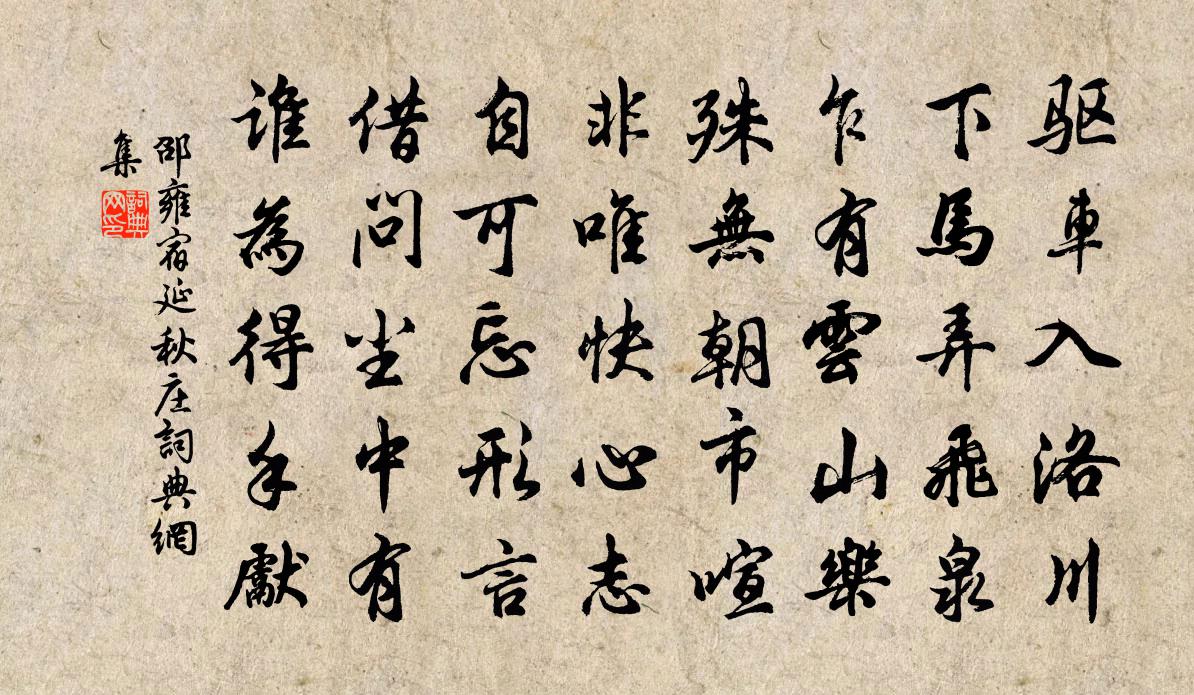 驱車入洛川
下馬弄飛泉
乍有雲山樂
殊無朝市喧
非唯快心志
自可忘形言
借問尘中有
誰為得手獻
邵雍宿延秋庄詞典網
集
詞典
网印